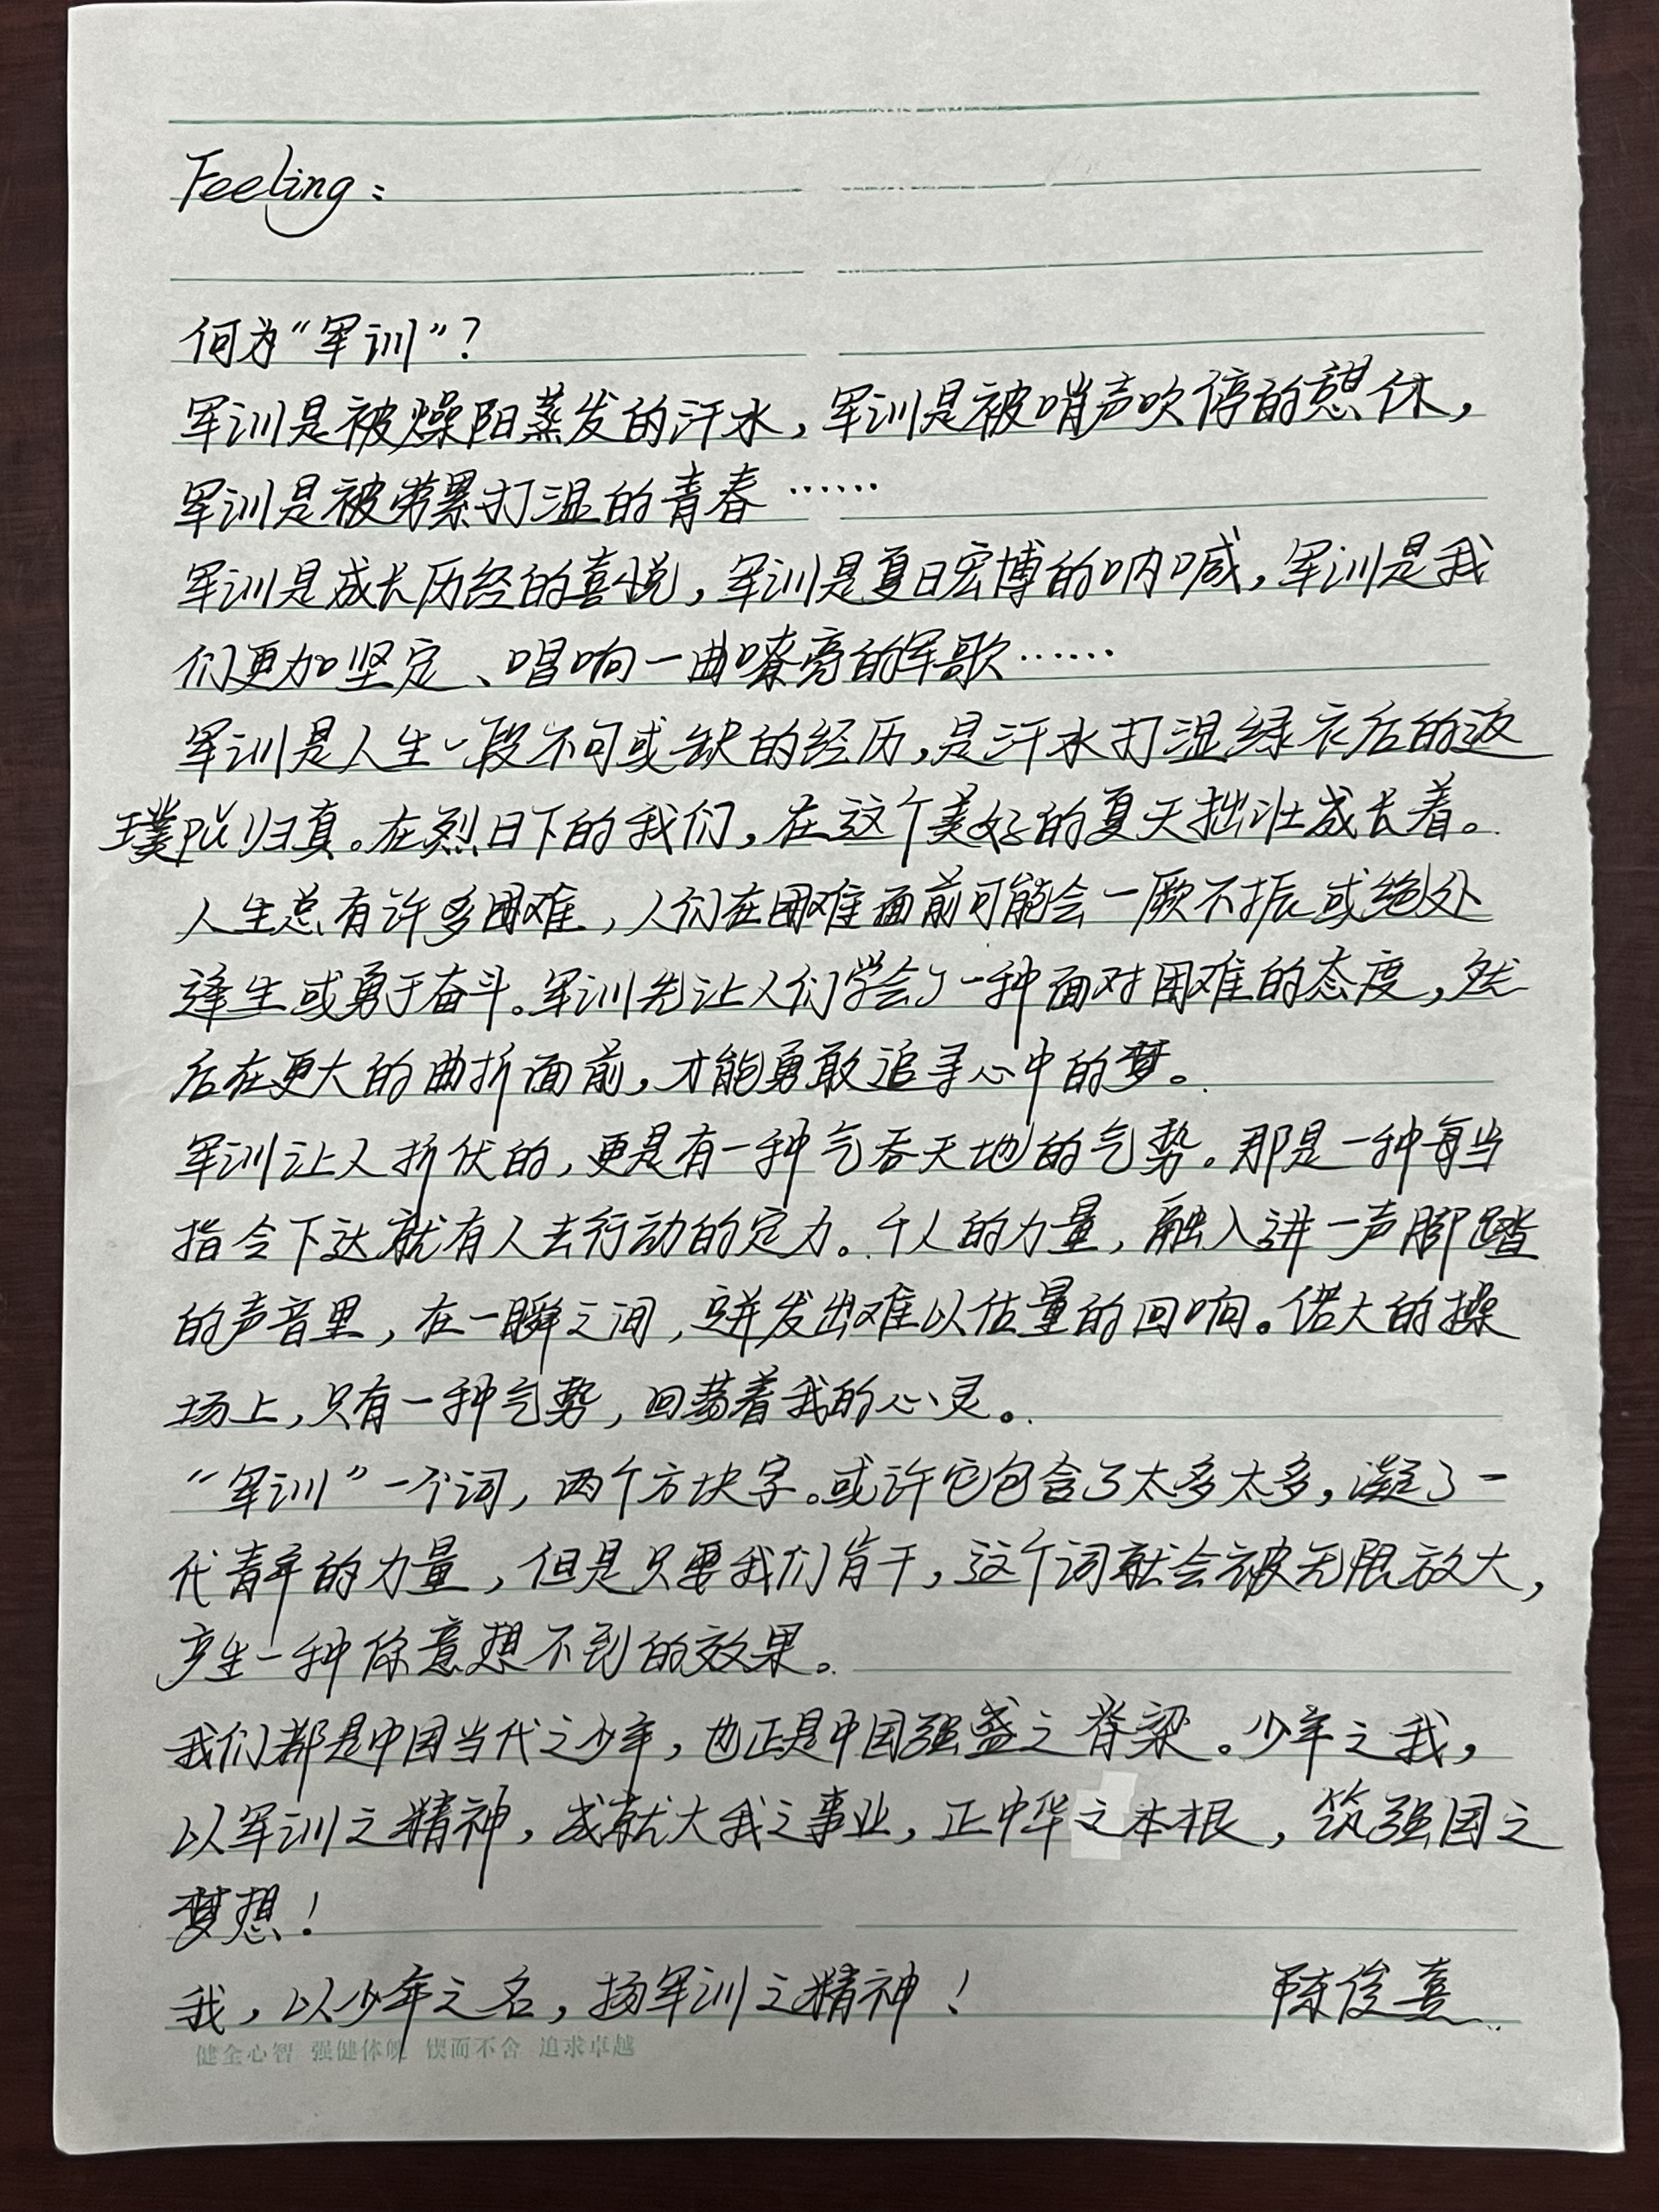 Feeling：
何为“军训”？
军训是被燥阳蒸发的汗水，军训是被哨声吹停的憩休，
军训是被劳累打湿的青春……
军训是成长历经的喜悦，军训是夏日宏博的呐喊，军训是我
们更加坚定、唱响一曲嘹亮的军歌……
军训是人生一段不可或缺的经历，是汗水打湿绿衣后的返
璞归真。在烈日下的我们，在这个美好的夏天拙壮成长着。
人生总有许多困难，人们在困难面前可能会一蹶不振或绝处
逢生或勇于奋斗。军训先让人们学会了一种面对困难的态度，然
后在更大的曲折面前，才能勇敢追寻心中的梦。
军训让人折伏的，更是有一种气吞天地的气势。那是一种每当
指令下达就有人去行动的定力。千人的力量，融入进一声脚踏
的声音里，在一瞬之间，迸发出难以估量的回响。偌大的操
场上，只有一种气势，回荡着我的心灵。
“军训”一个词，两个方块字。或许它包含了太多太多，凝了一
代青年的力量，但是只要我们肯干，这个词就会被无限放大，
产生一种你意想不到的效果。
我们都是中国当代之少年，也正是中国强盛之脊梁。少年之我，
以军训之精神，成就大我之事业，正中华之本根，筑强国之
梦想！
我，以少年之名，扬军训之精神！ 陈俊熹
健全心智 强健体魄 锲而不舍 追求卓越